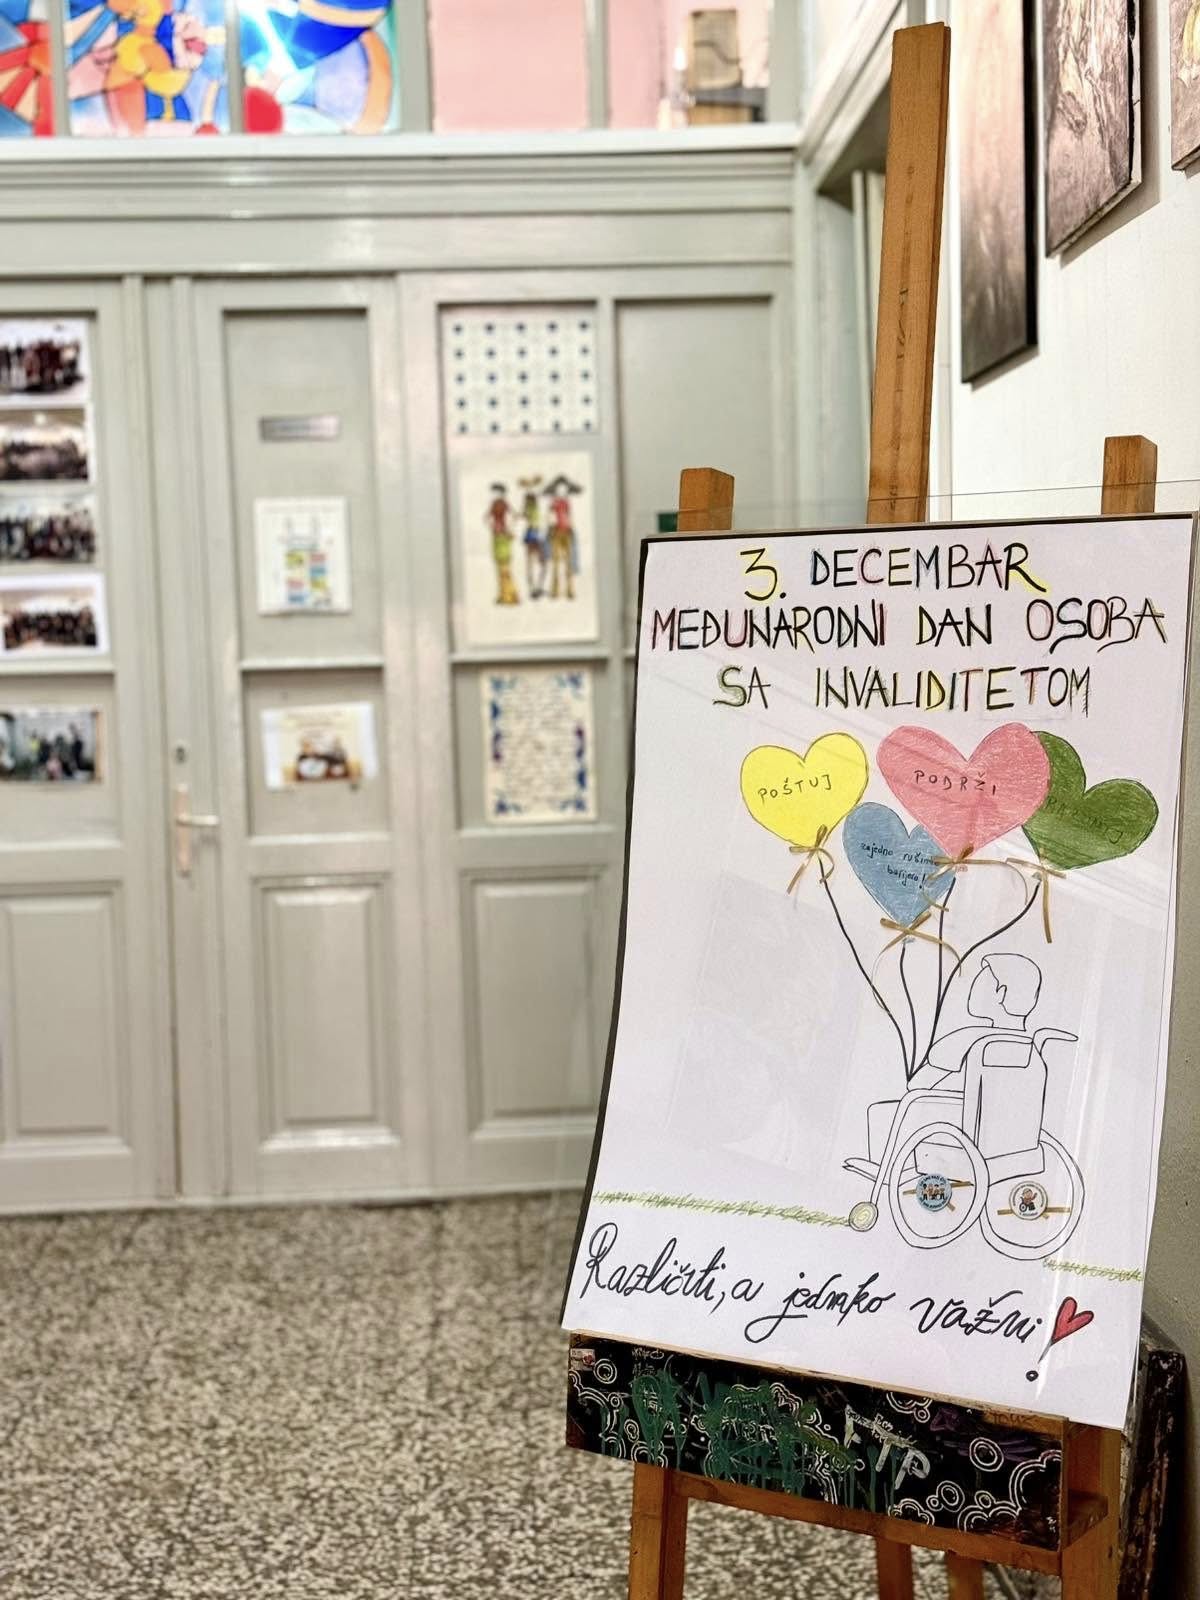 3. DECEMBAR
MEĐUNARODNI DAN OSOBA
SA INVALIDITETOM
POŠTUJ
PODRŽI
zajedno rušimo
barijere!
Različiti, a jednako važni!
FTP